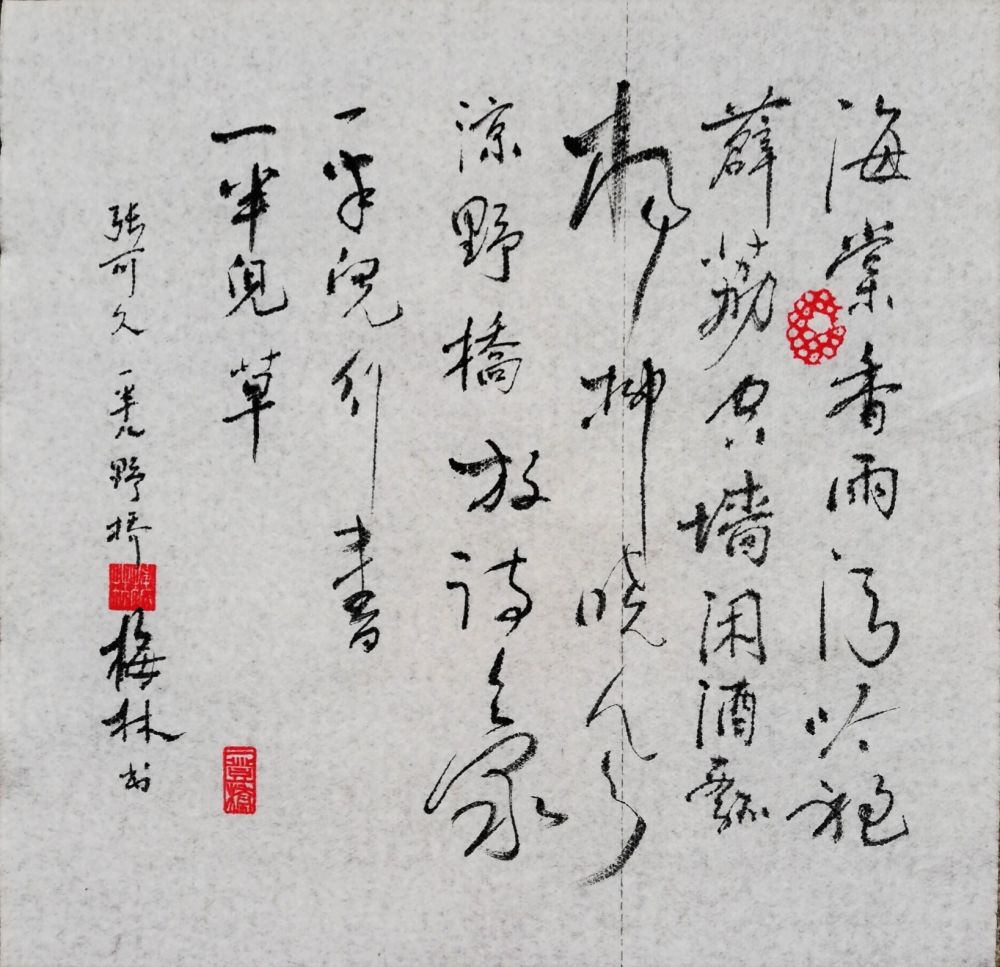 海棠香雨污吟袍
薜荔空墙闲酒瓢
楊柳晓风
涼野橋放诗豪
一半兒行書
一半兒草
张可久一半儿野桥
梅林书